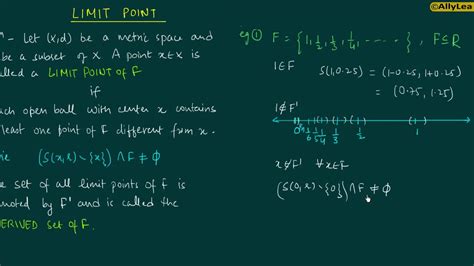 ©AllyLea
LIMIT POINT
- Let (X,d) be a metric space and
be a subset of X. A point x∈X is
called a LIMIT POINT of F
if
each open ball with center x contains
least one point of F different from x.
(S(x,r) \ {x}) ∩ F ≠ φ
set of all limit points of F is
noted by F' and is called the
DERIVED set of F.
eg ① F = {1, 1/2, 1/3, 1/4, .....}, F⊆R
1∈F S(1, 0.25) = (1-0.25, 1+0.25)
= (0.75, 1.25)
1∉F'
0 1/5 1/4 1/3 1/2 1
x∉F' ∀x∈F
(S(0,r) \ {0}) ∩ F ≠ φ